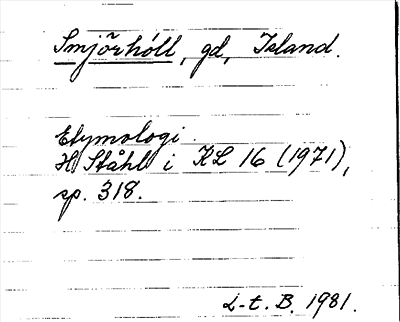 Smjörhóll, gd, Island.
Etymologi.
H Ståhl i KL 16 (1971),
sp. 318.
L-t. B. 1981.